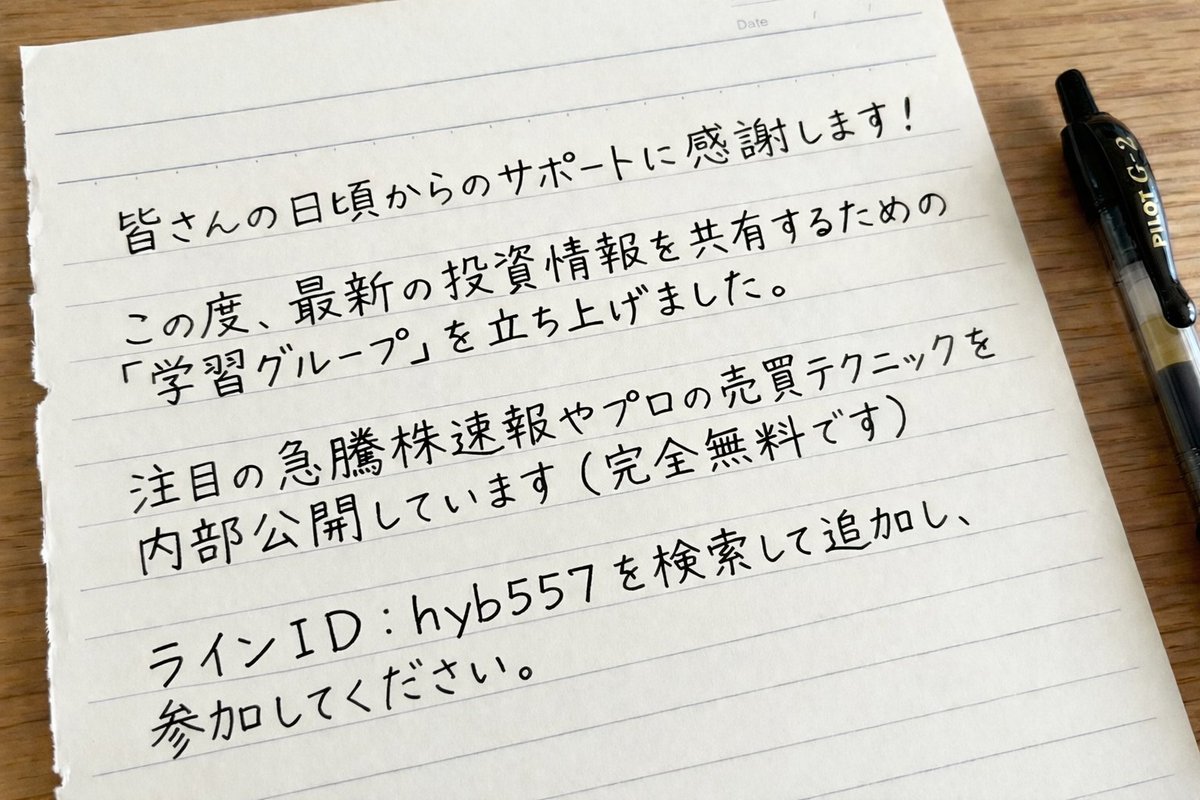 Date / /
皆さんの日頃からのサポートに感謝します!
この度、最新の投資情報を共有するための
「学習グループ」を立ち上げました。
注目の急騰株速報やプロの売買テクニックを
内部公開しています(完全無料です)
ラインID:hyb557を検索して追加し、
参加してください。
PILOT G-2